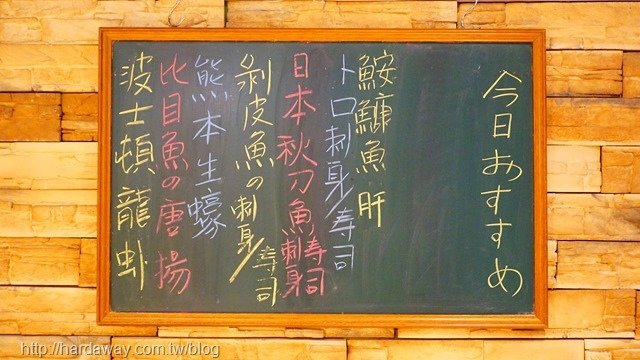 今日おすすめ
鮟鱇魚肝
卜口刺身/寿司
日本秋刀魚刺身寿司
剝皮魚の刺身/寿司
熊本生蠔
比目魚の唐揚
波士頓龍虾
http://hardaway.com.tw/blog